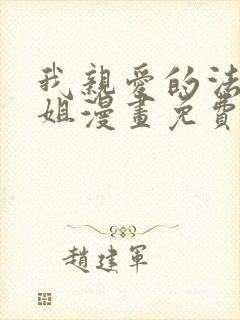 我親愛的法
姐漫畫免費
趙建軍